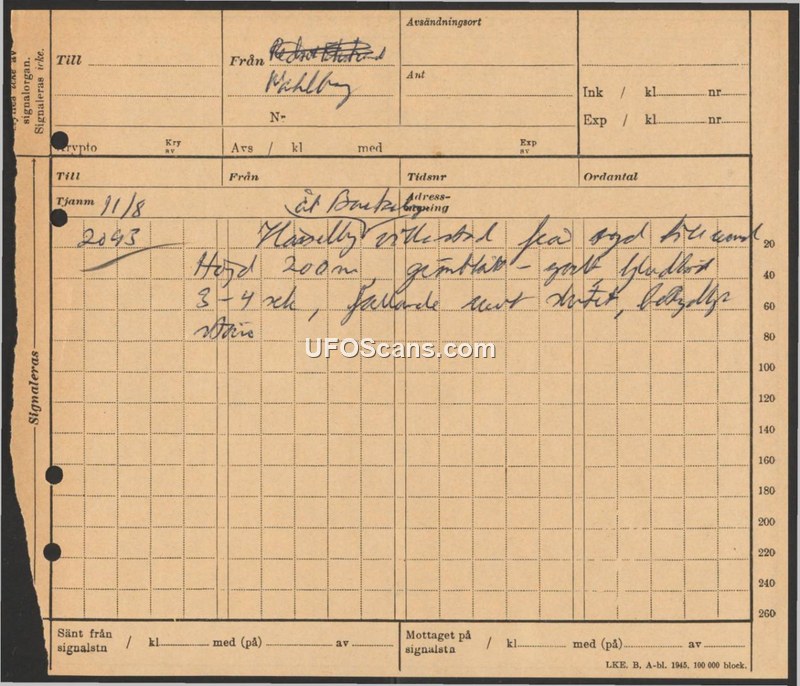 Avsändningsort
Till
Från
Wahlberg
Ant
Ink / kl nr
N-
Exp / kl nr
signalorgan.
Signaleras icke.
Krypto
Kry av
Avs / kl med
Exp av
Till Från Tidsnr Ordantal
Tjanm 11/8 åt Barkarby
2043 Hässelby villastad från syd till nord 20
Höjd 200 m, grönblått - ljudlöst 40
3-4 sek, fallande mot slutet, betydligt 60
större 80
UFOScans.com
100
120
140
160
180
200
220
240
260
Signaleras
Sänt från signalstn / kl med (på) av
Mottaget på signalstn / kl med (på) av
LKE. B, A-bl. 1945, 100 000 block.